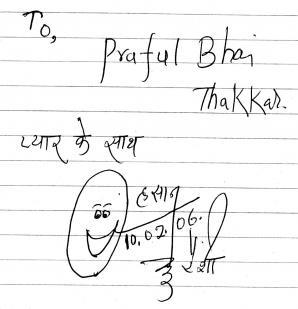 To,
Praful Bhai
Thakkar.
प्यार के साथ
हसान
10.02.06.